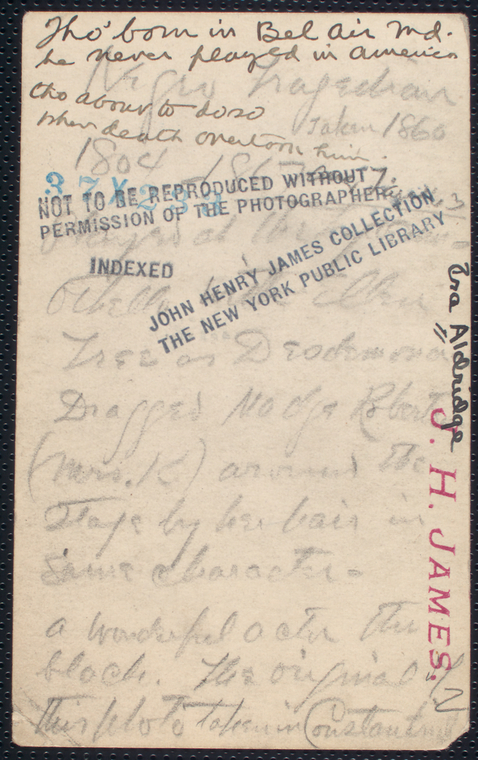 Tho' born in Bel air Md.
he never played in america
tho about to do so
when death overtook him.
Negro Tragedian
Taken 1860
1804 1867
37X2
NOT TO BE REPRODUCED WITHOUT
PERMISSION OF THE PHOTOGRAPHER
INDEXED
JOHN HENRY JAMES COLLECTION
THE NEW YORK PUBLIC LIBRARY
Played at the
Othello Ellen
Tree as Desdemona
Dragged Madge Robert
(Mrs. K) around the
stage by her hair in
same character-
a wonderful actor tho
black. The original of
this photo taken in Constantin
Ira Aldridge
J. H. JAMES.